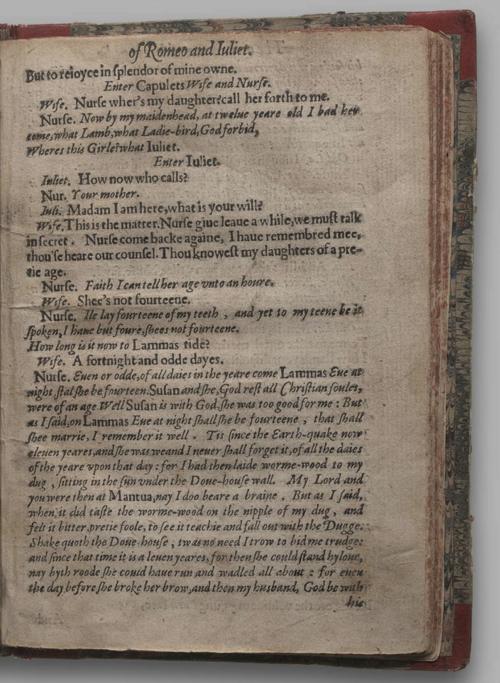 of Romeo and Iuliet.
But to reioyce in ſplendor of mine owne.
Enter Capulets Wife and Nurſe.
Wife. Nurſe wher's my daughter? call her forth to me.
Nurſe. Now by my maidenhead, at twelue yeare old I bad her
come, what Lamb, what Ladie-bird, God forbid,
Wheres this Girle? what Iuliet.
Enter Iuliet.
Iuliet. How now who calls?
Nur. Your mother.
Iuli. Madam I am here, what is your will?
Wife. This is the matter. Nurſe giue leaue a while, we muſt talk
in ſecret. Nurſe come backe againe, I haue remembred mee,
thou'ſe heare our counſel. Thou knoweſt my daughters of a pre-
tie age.
Nurſe. Faith I can tell her age vnto an houre.
Wife. Shee's not fourteene.
Nurſe. Ile lay fourteene of my teeth, and yet to my teene be it
ſpoken, I haue but foure, ſhees not fourteene.
How long is it now to Lammas tide?
Wife. A fortnight and odde dayes.
Nurſe. Euen or odde, of all daies in the yeare come Lammas Eue at
night ſtal ſhe be fourteen. Suſan and ſhe, God reſt all Chriſtian ſoules,
were of an age. Well Suſan is with God, ſhe was too good for me: But
as I ſaid, on Lammas Eue at night ſhall ſhe be fourteene, that ſhall
ſhee marrie, I remember it well. Tis ſince the Earth-quake now
eleuen yeares, and ſhe was weand I neuer ſhall forget it, of all the daies
of the yeare vpon that day: for I had then laide worme-wood to my
dug, ſitting in the ſun vnder the Doue-houſe wall. My Lord and
you were then at Mantua, nay I doo beare a braine. But as I ſaid,
when it did taſte the worme-wood on the nipple of my dug, and
felt it bitter, pretie foole, to ſee it teachie and fall out with the Dugge.
Shake quoth the Doue-houſe, twas no need I trow to bid me trudge:
and ſince that time it is a leuen yeares, for then ſhe could ſtand hylone,
nay byth roode ſhe could haue run and wadled all about: for euen
the day before ſhe broke her brow, and then my husband, God be with
his